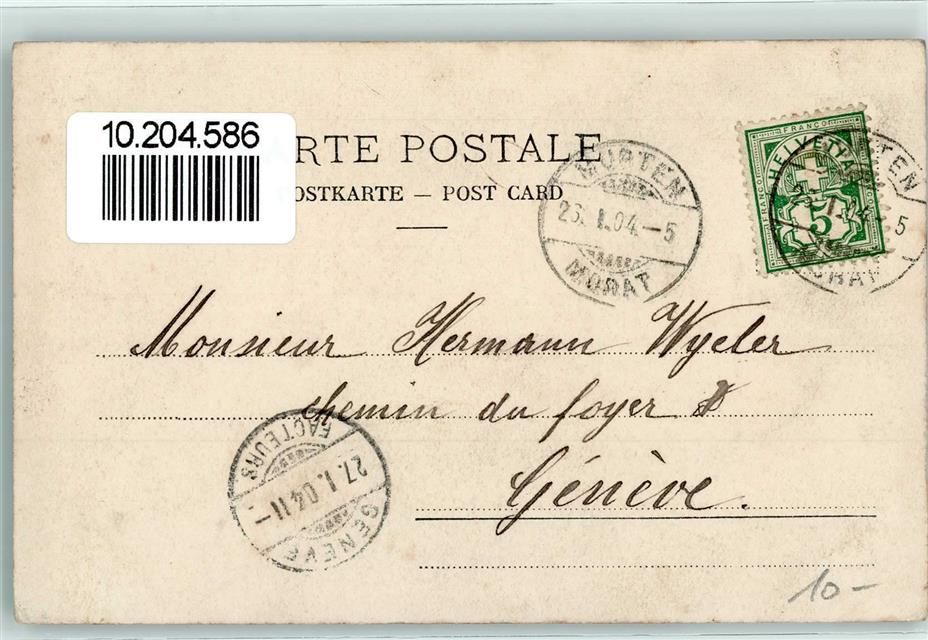 10.204.586
RTE POSTALE
OSTKARTE — POST CARD
MURTEN
26.I.04.–5
MORAT
FRANCO
HELVETIA
FRANCO
5
TEN
5
RAT
Monsieur Hermann Wyler
chemin du foyer
Génève.
FACTEURS
27.I.04 II–
GENÈVE
10–